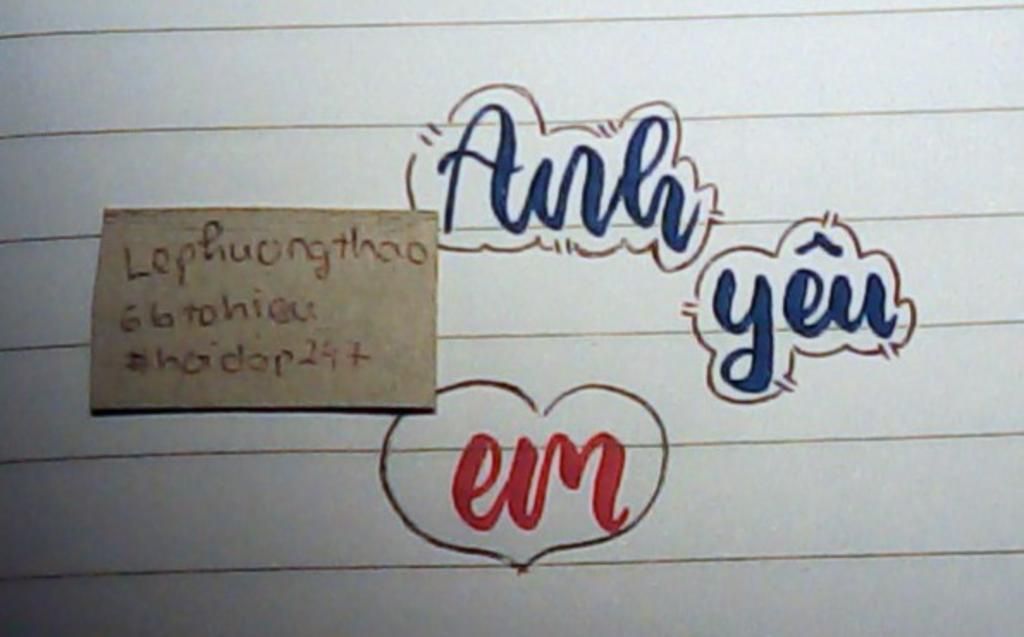 Anh
yêu
em
Lephuongthao
6b tohieu
#hoidap247